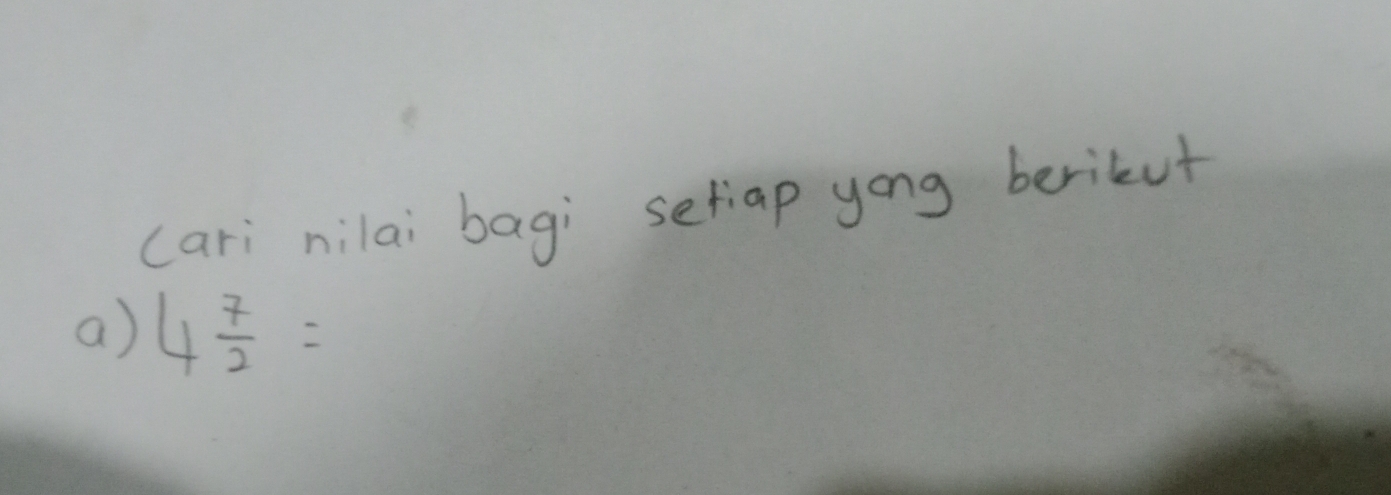 Cari nilai bagi setiap yang berikut
a) 4 7/2 =